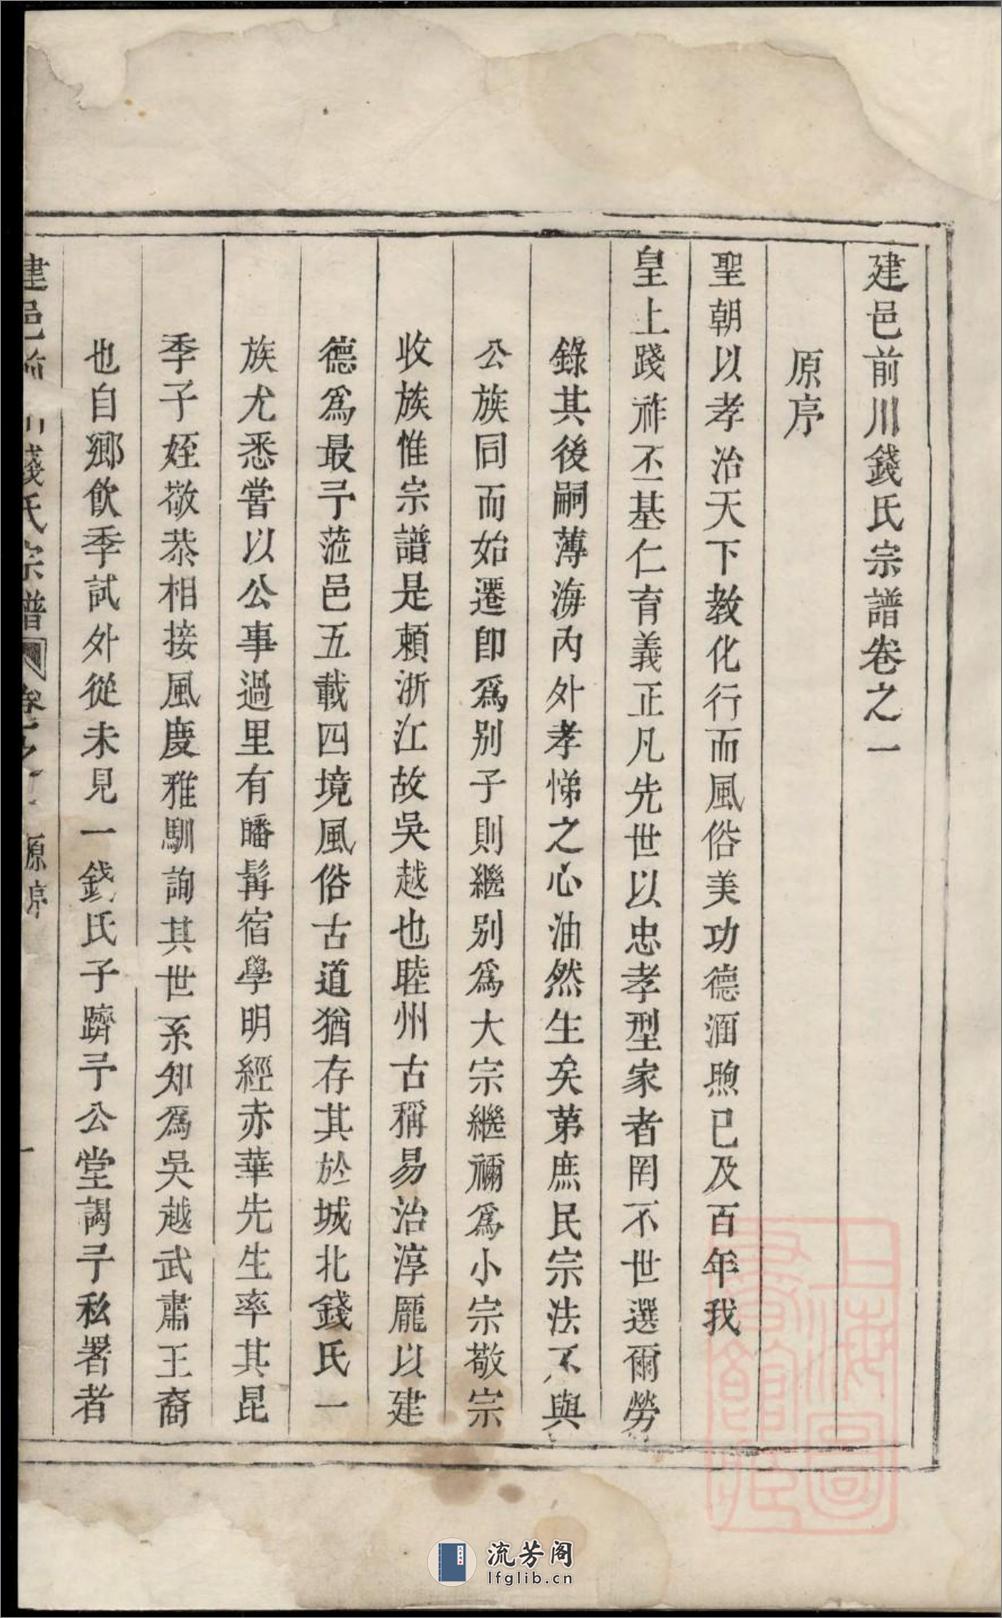 建邑前川錢氏宗譜卷之一
原序
聖朝以孝治天下教化行而風俗美功德涵煦已及百年我
皇上踐祚丕基仁育義正凡先世以忠孝型家者罔不世選爾勞
錄其後嗣薄海內外孝悌之心油然生矣第庶民宗法不與
公族同而始遷卽爲別子則繼別爲大宗繼禰爲小宗敬宗
收族惟宗譜是賴浙江故吳越也睦州古稱易治淳龐以建
德爲最予蒞邑五載四境風俗古道猶存其於城北錢氏一
族尤悉嘗以公事過里有皤髯宿學明經赤華先生率其昆
季子姪敬恭相接風慶雅馴詢其世系知爲吳越武肅王裔
也自鄉飲季試外從未見一錢氏子躋予公堂謁予私署者
建邑前川錢氏宗譜 卷之一 原序 一
上海圖書館藏
流芳阁
lfglib.cn